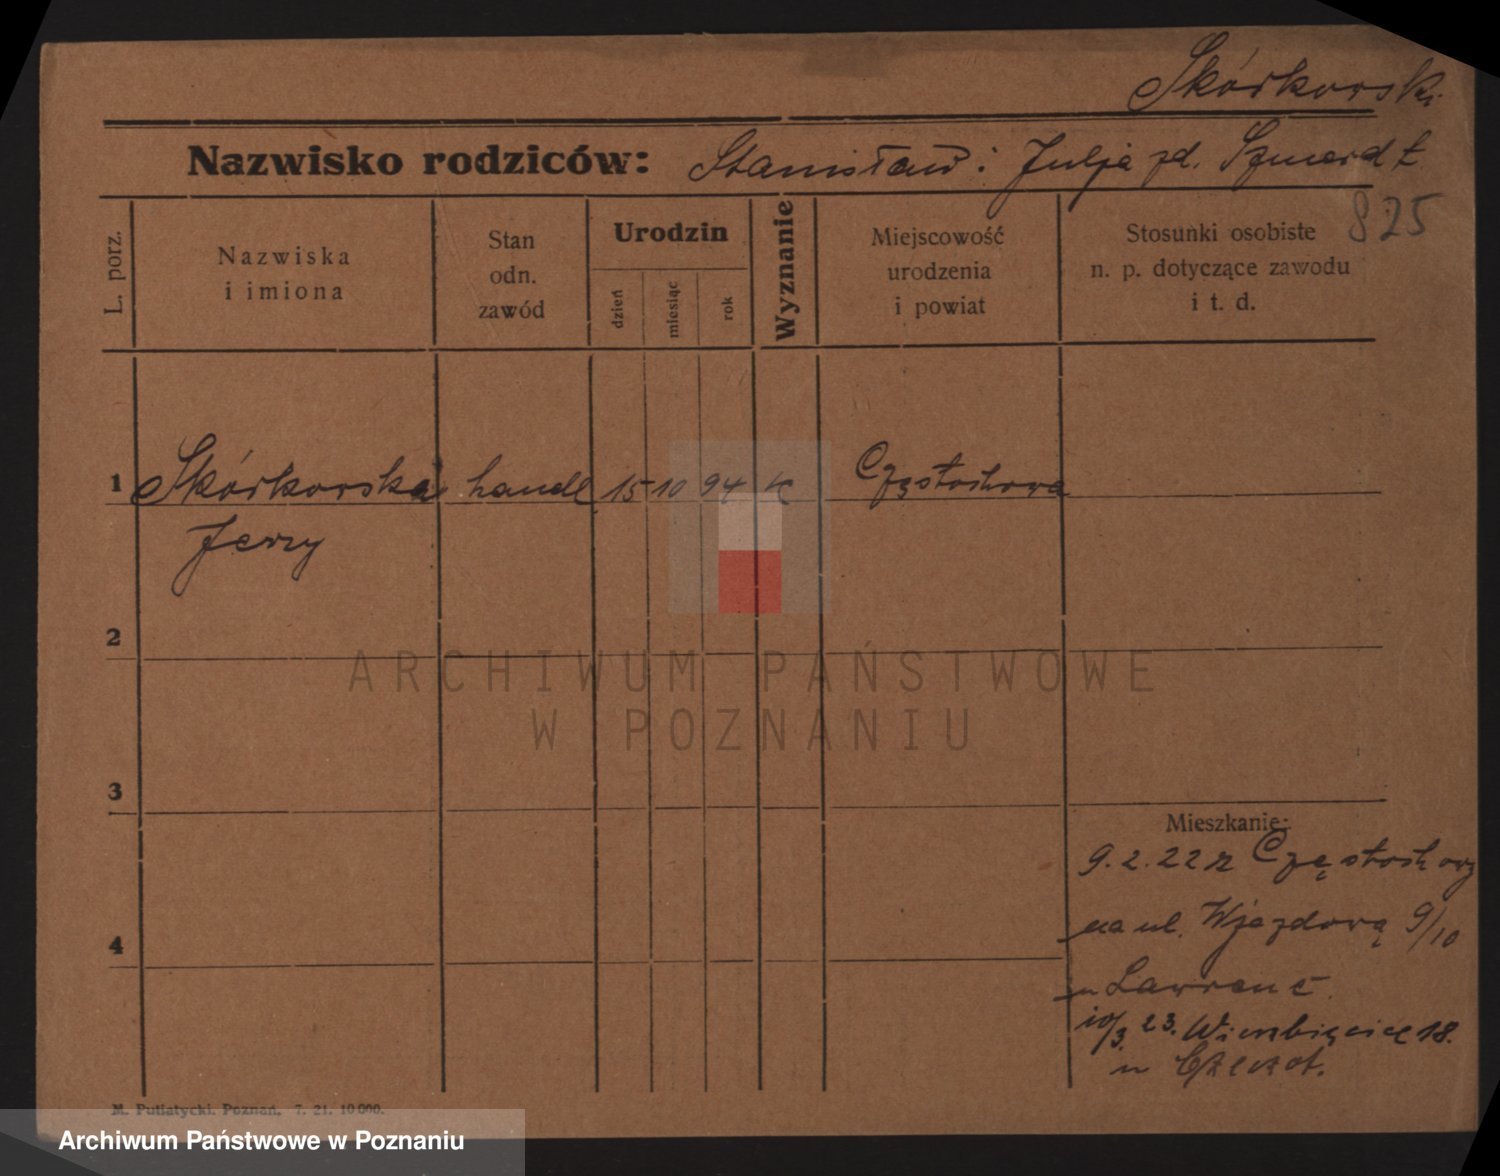 Skórkowski
Nazwisko rodziców: Stanisław i Julja zd. Szmerdt
825
L. porz.
Nazwiska
i imiona
Stan
odn.
zawód
Urodzin
dzień
miesiąc
rok
Wyznanie
Miejscowość
urodzenia
i powiat
Stosunki osobiste
n. p. dotyczące zawodu
i t. d.
1 Skórkowski handl 15 10 94 k Częstochowa
Jerzy
2
ARCHIWUM PAŃSTWOWE
W POZNANIU
3
Mieszkanie:
9.2.22 z Częstochowy
4
na ul. Wjazdową 9/10
u Lawrenc
10/3. 23. Wierzbięcice 18.
u
M. Putiatycki. Poznań. 7. 21. 10 000.
Archiwum Państwowe w Poznaniu